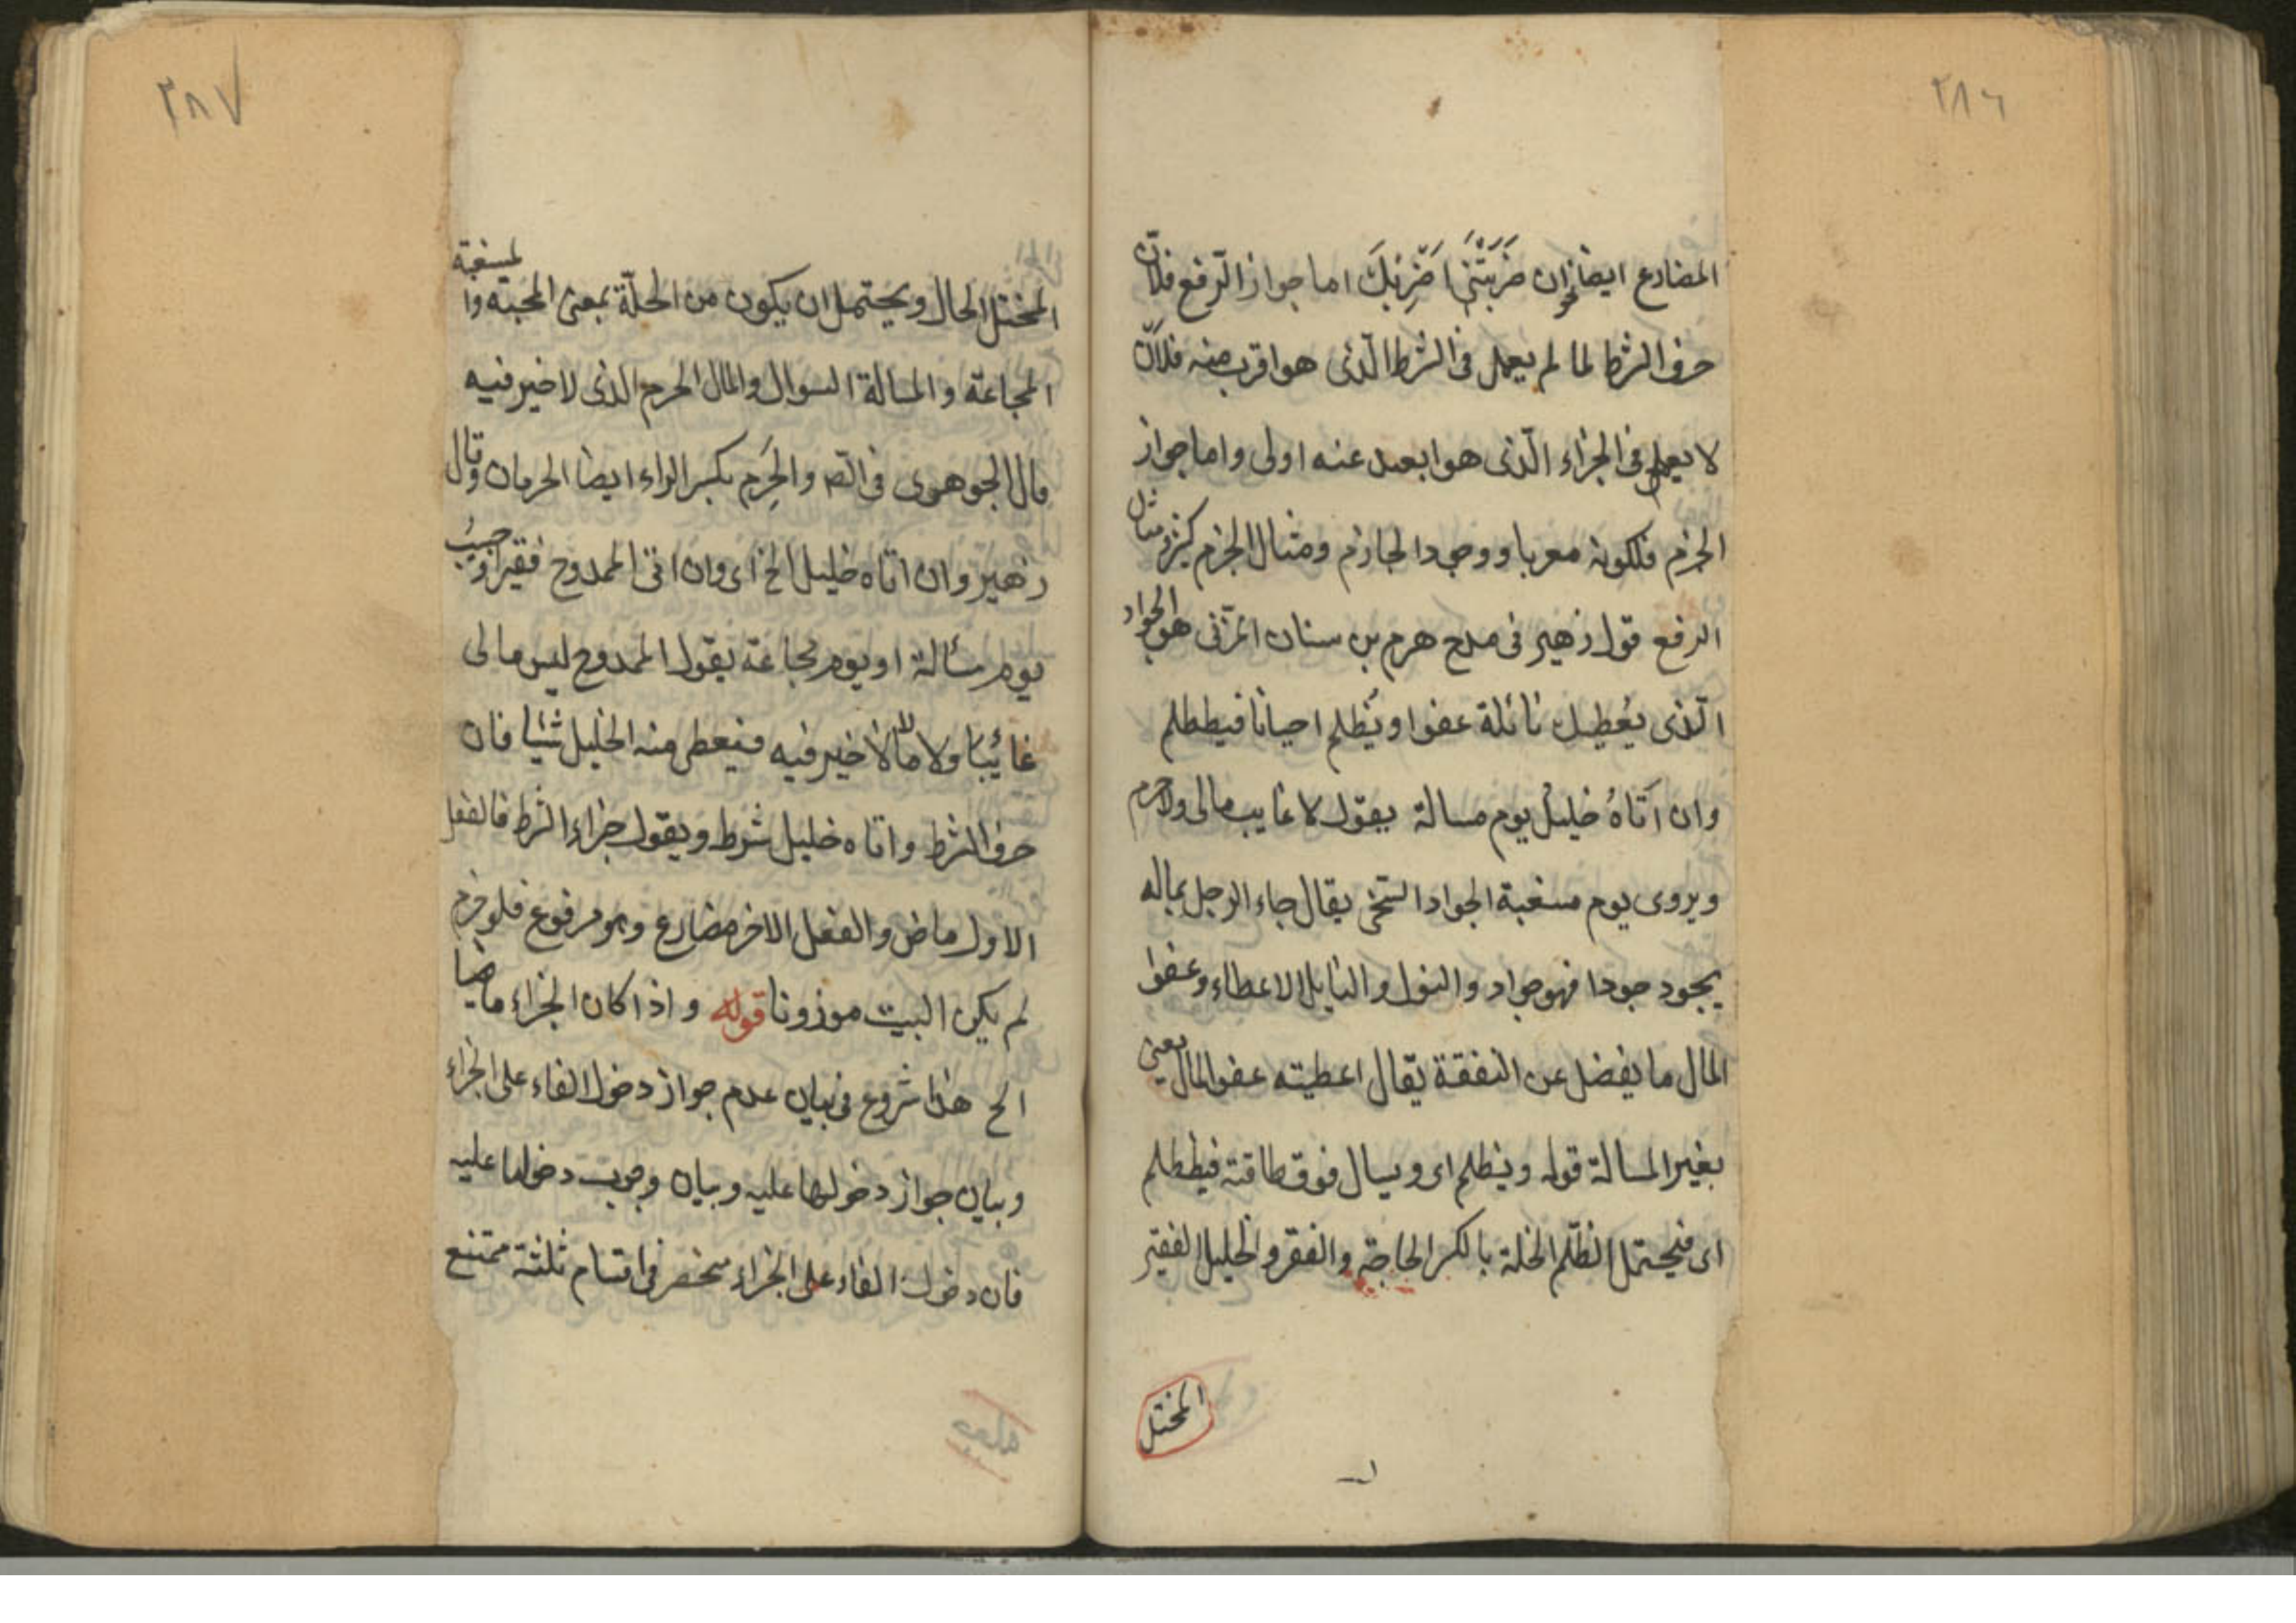 ٢٨٦
المضارع ايضا نحو ان ضَرَبْتَنِى اَضْرِبُكَ اما جواز الرّفع فلانّ
حرف الشرط لما لم يعمل فى الشرط الّذى هو اقرب منه فلاَنّ
لا يعمل فى الجزاء الّذى هو ابعد عنه اولى واما جواز
الجزم فلكونه معربا ووجود الجازم ومثال الجزم كثير ومثال
الرفع قول زهير فى مدح هرم بن سنان المزنى هو الجواد
الّذى يُعطيك نائلة عفوا ويُظلم احيانا فيظطلم
وان اَتاهُ خليل يوم مسالة يقول لا غايب مالى ولا حرم
ويروى يوم مسغبة الجواد السّخى يقال جاء الرجل بماله
يجود جودا فهو جواد والنول والنايل الاعطاء وعفوا
المال ما يفضل عن النفقة يقال اعطيته عفو المال يعنى
بغير المسالة قوله ويظلم اى ويسال فوق طاقته فيظطلم
اى فيحتمل الظلم الخلة بالكسر الحاجة والفقر والخليل الفقير
المختل
٢٨٧
المختل الحال ويحتمل ان يكون من الخلّة بمعنى المحبه والمسغبة
المجاعة والمسالة السوال والمال الحرم الذى لا خير فيه
قال الجوهرى فى الص والحَرِم بكسر الراء ايضا الحرمان وقال
زهير وان اتاه خليل الخ اى وان اتى الممدوح فقير او حبيبُ
يوم مسألة او يوم مجاعة يقول الممدوح ليس مالى
غائبا ولا مالا لا خير فيه فيعطى منه الخليل شيئا فان
حرف الشرط واتاه خليل شرط ويقول جزاء الشرط فالفعل
الاول ماض والفعل الاخر مضارع وهو مرفوع فلو جزم
لم يكن البيت موزونا قوله واذا كان الجزاء ماضيا
الخ هذا شروع فى بيان عدم جواز دخول الفاء على الجزاء
وبيان جواز دخولها عليه وبيان وجوب دخولها عليه
فان دخول الفاء على الجزاء منحصر فى اقسام ثلثة ممتنع